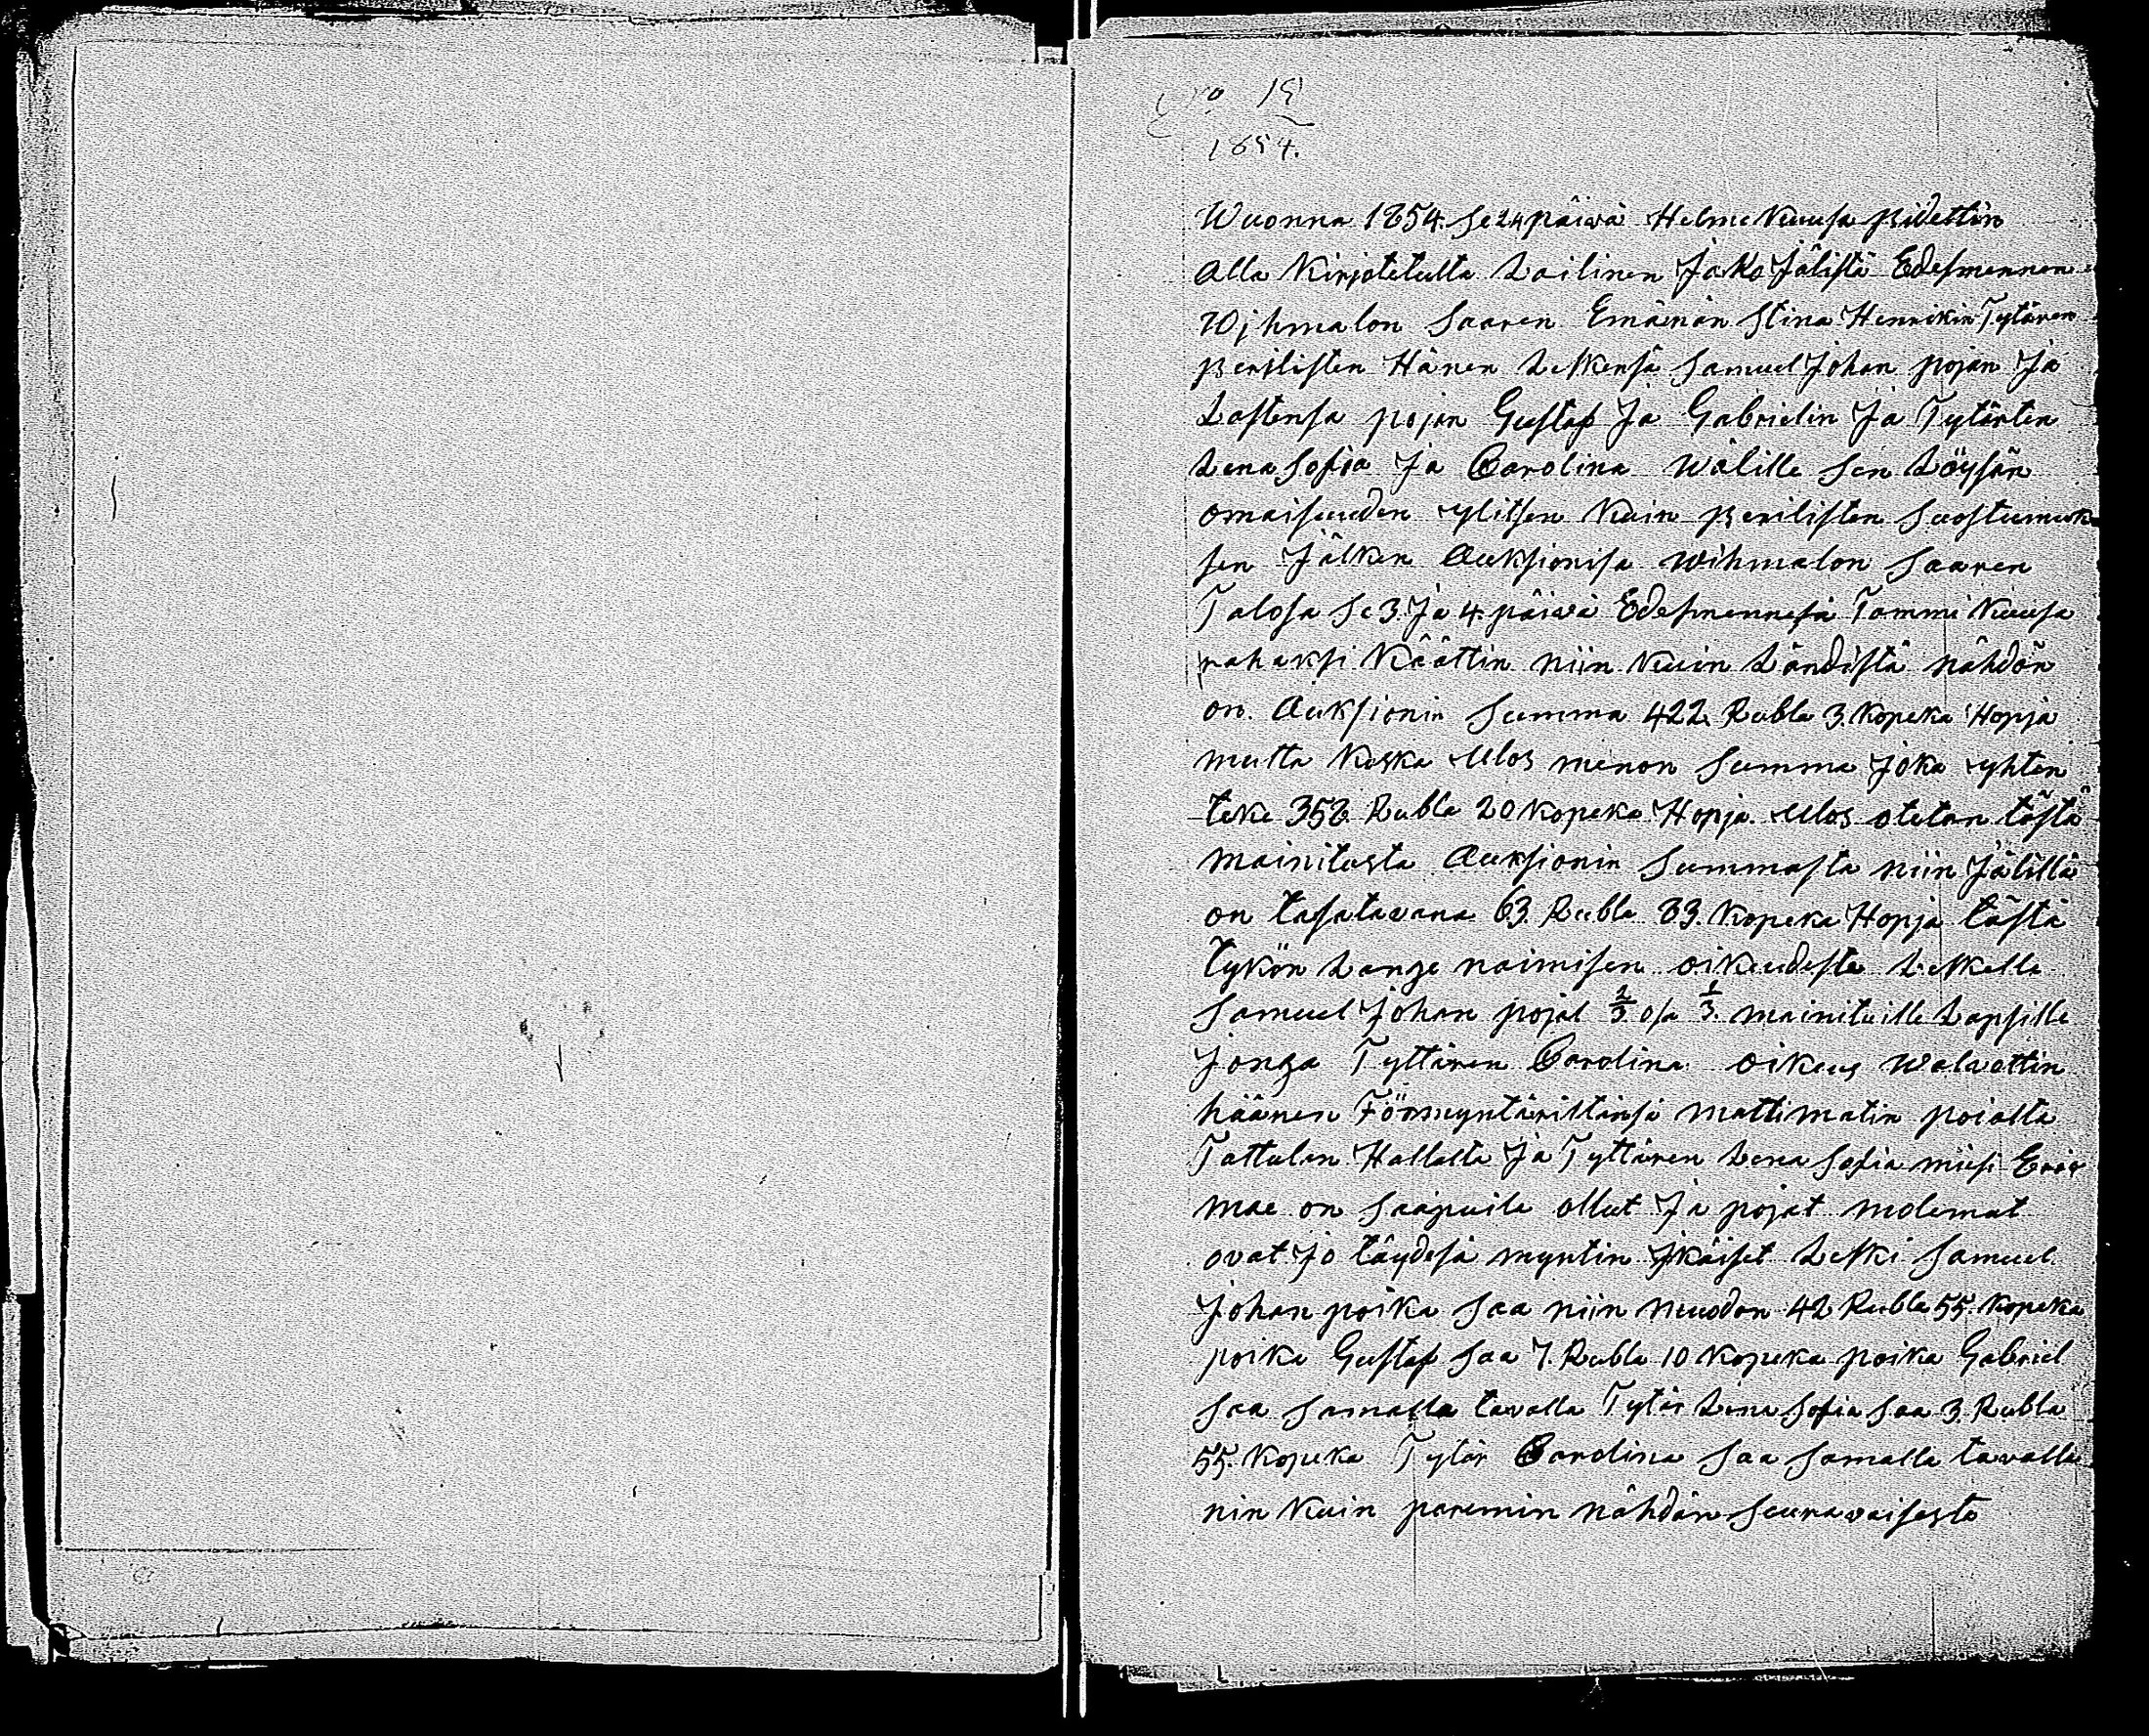 No 19
1854.
Wuonna 1854. Se 24 päivä Helme Kuusa pidettin
alla Kirjotetulta Lailinen Jako Jälistä Edesmennen
Wjhmalon Saaren Emänän Stina Henrikin Tytären
perilisten Hänen Leskensä Samuel Johan pojan Ja
Lastensa pojan Gustaf Ja Gabrielin Ja Tytärten
Lena Sofia Ja Carolina wälille Sen Löysän
omaisuuden ylitsen Kuin perilisten Suostumuk
sen Jälken Auksionisa wihmalon Saaren
Talosa Se 3. Ja 4. päivä Edesmennesä Tammi Kuusa
rahaksi Käättin niin Kuin Ländistä nähdän
on. Auksionin Summa 422 Rubla 3. Kopeka Hopja
mutta Koska Ulos menon Summa Joka yhten
teke 358 Rubla 20 Kopeka Hopja Ulos otetan tästä
mainitusta Auksionin Summasta niin Jälillä
on tasatavana 63. Rubla 83. Kopeka Hopja tästä
tykön Lange naimisen oikeudesta Leskelle
Samuel Johan pojal 2/3 osa 1/3. mainituille Lapsille
Jonga Tyttären Carolina oikeus Walvottin
häänen Förmyntäriltänsä matti matin poialta
Tattulan Hallalta Ja Tyttären Lena Sofia miesi
mae on Saapuila ollut Ja pojat molemat
ovat Jo täydesä myntin Jkäiset Leski Samuel
Johan poika Saa niin muodon 42 Rubla 55. Kopeka
poika Gustaf Saa 7. Rubla 10 Kopeka poika Gabriel
Saa Samalla tavalla Tytär Lena Sofia Saa 3. Rubla
55. Kopeka Tytär Carolina Saa Samalla tavalla
nin Kuin paremin nähdän Seuravaisesta